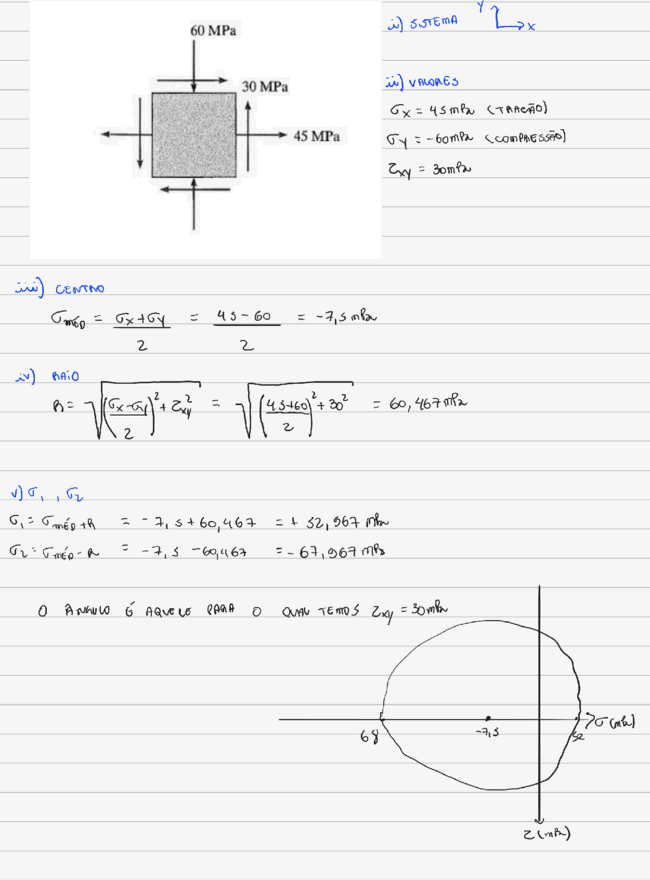 60 MPa
30 MPa
45 MPa
i) SISTEMA
Y
X
ii) VALORES
σx = 45 MPa (TRAÇÃO)
σy = -60 MPa (COMPRESSÃO)
τxy = 30 MPa
iii) CENTRO
σméd = σx+σy / 2 = 45-60 / 2 = -7,5 MPa
iv) RAIO
R = √((σx-σy / 2)² + τxy²) = √((45+60 / 2)² + 30²) = 60,467 MPa
v) σ1, σ2
σ1 = σméd+R = -7,5+60,467 = +52,967 MPa
σ2 = σméd-R = -7,5 -60,467 = -67,967 MPa
O ÂNGULO É AQUELE PARA O QUAL TEMOS τxy = 30 MPa
σ (MPa)
68
-7,5
52
τ (MPa)